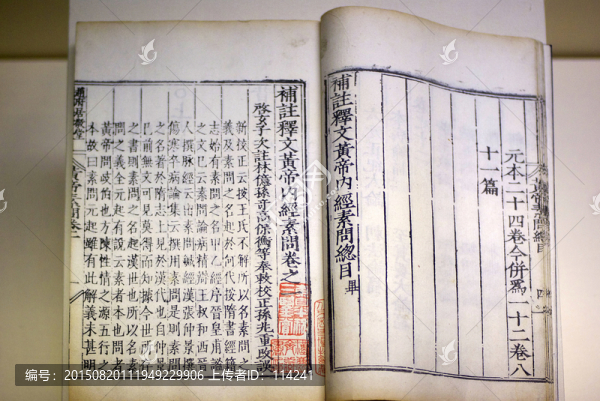 元本二十四卷今併爲一十二卷八
十一篇
補註釋文黃帝内經素問總目畢
補註釋文黃帝内經素問卷之一
啓玄子次註林億孫奇高保衡等奉敕校正孫兆重改誤
新校正云按王氏不解所以名素問之
義及素問之名起於何代按隋書經籍
志始有素問之名甲乙經序晉皇甫謐
之文已云素問論病精辨王叔和西晉
人撰脉經云出素問鍼經漢張仲景撰
傷寒卒病論集云撰用素問是則素問
之名著於隋志上見於漢代也自仲景
已前無文可見莫得而知據今世所存
之書則素問之名起漢世也所以名素
問之義全元起有說云素者本也問者
黃帝問岐伯也方陳性情之源五行之
本故曰素問元起雖有此解義未甚明
编号:20150820111949229906 上传者ID:114241